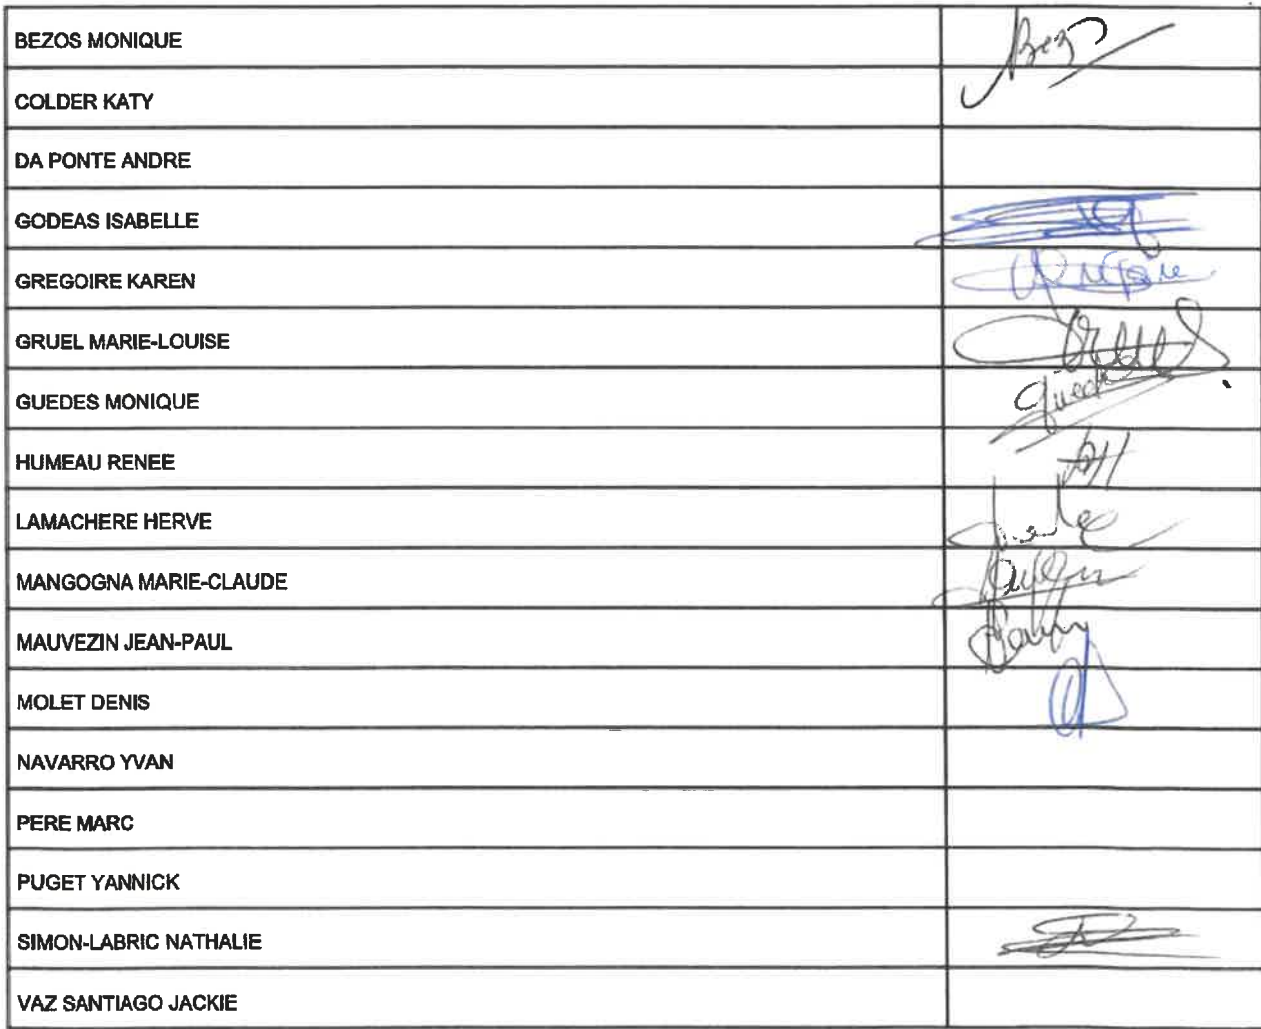 BEZOS MONIQUE
COLDER KATY
DA PONTE ANDRE
GODEAS ISABELLE
GREGOIRE KAREN
GRUEL MARIE-LOUISE
GUEDES MONIQUE
HUMEAU RENEE
LAMACHERE HERVE
MANGOGNA MARIE-CLAUDE
MAUVEZIN JEAN-PAUL
MOLET DENIS
NAVARRO YVAN
PERE MARC
PUGET YANNICK
SIMON-LABRIC NATHALIE
VAZ SANTIAGO JACKIE